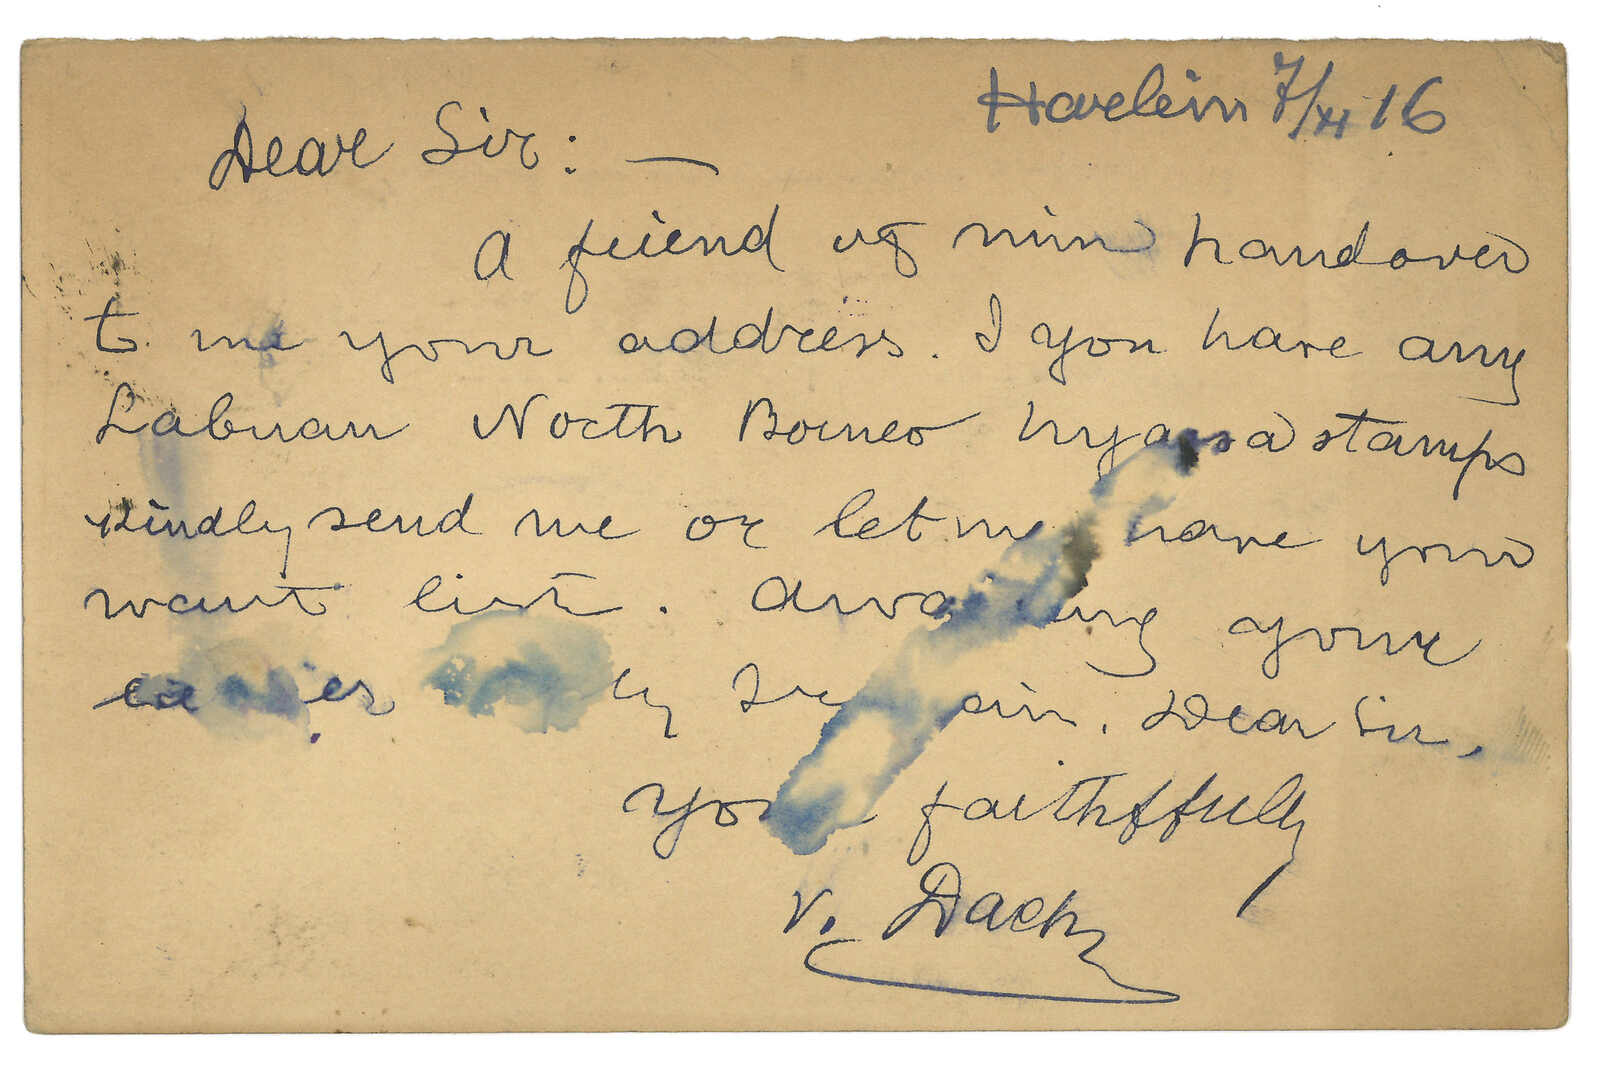 Havelein 7/XI 16
Dear Sir: —
A friend of min handover
to me your address. I you have any
Labuan North Borneo nyassa stamps
kindly send me or let me have your
want list. Awaiting your
I remain, Dear Sir,
your faithffully
v. Dach